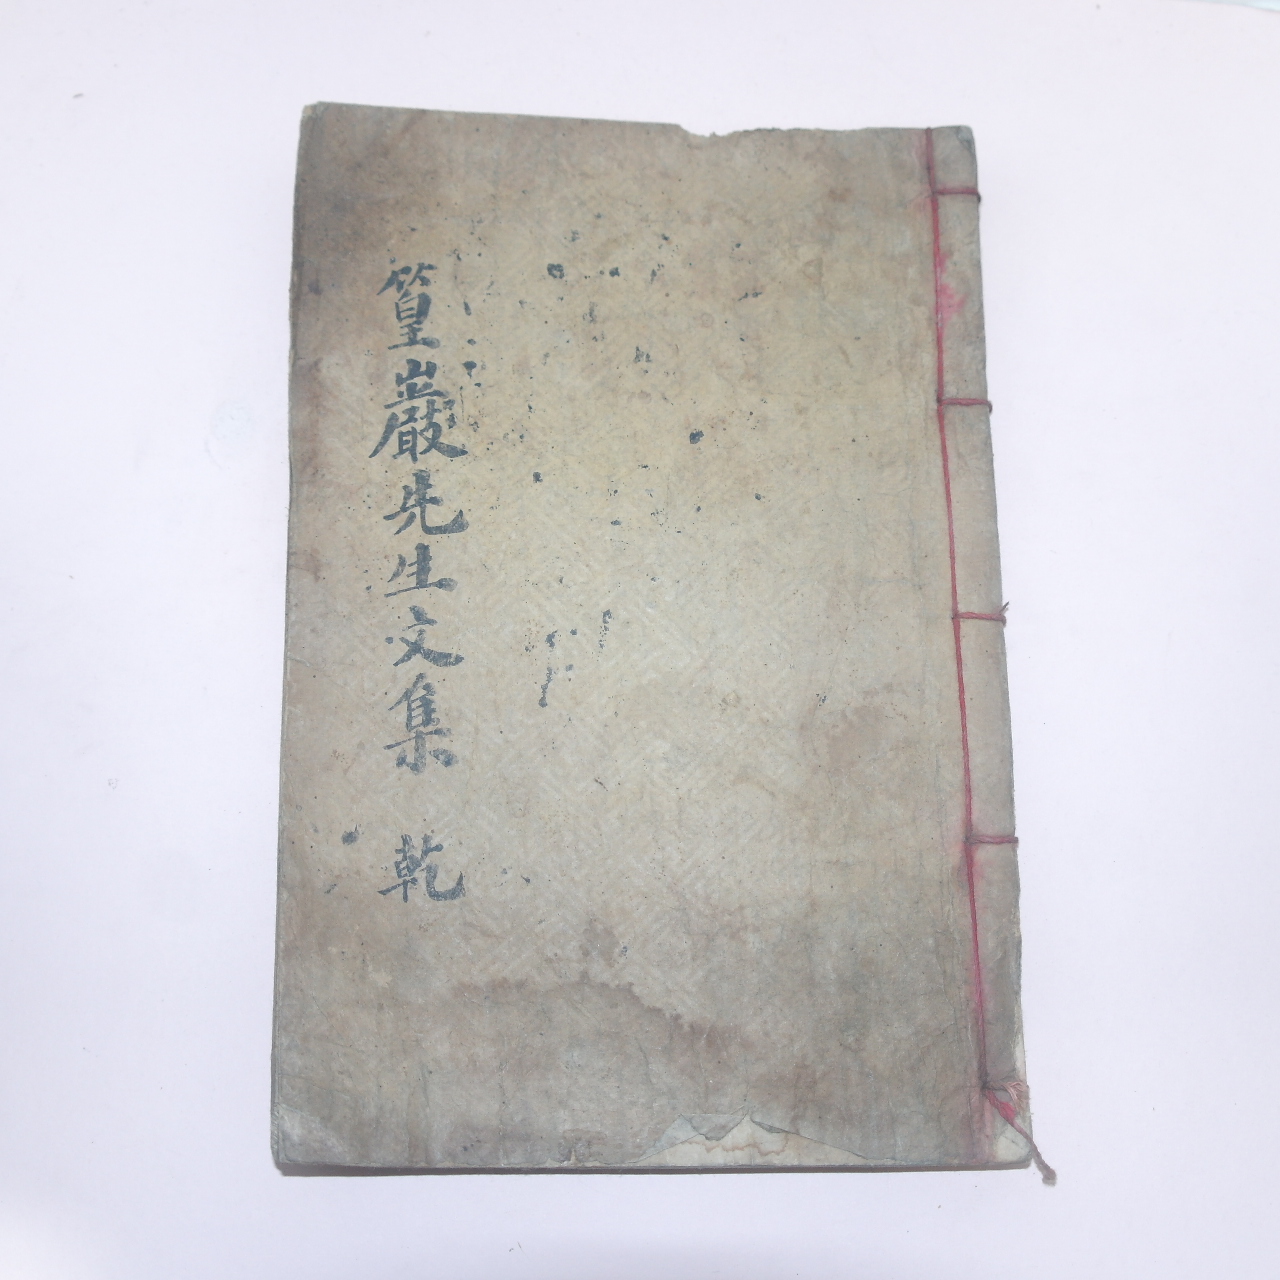 篁巖先生文集 乾